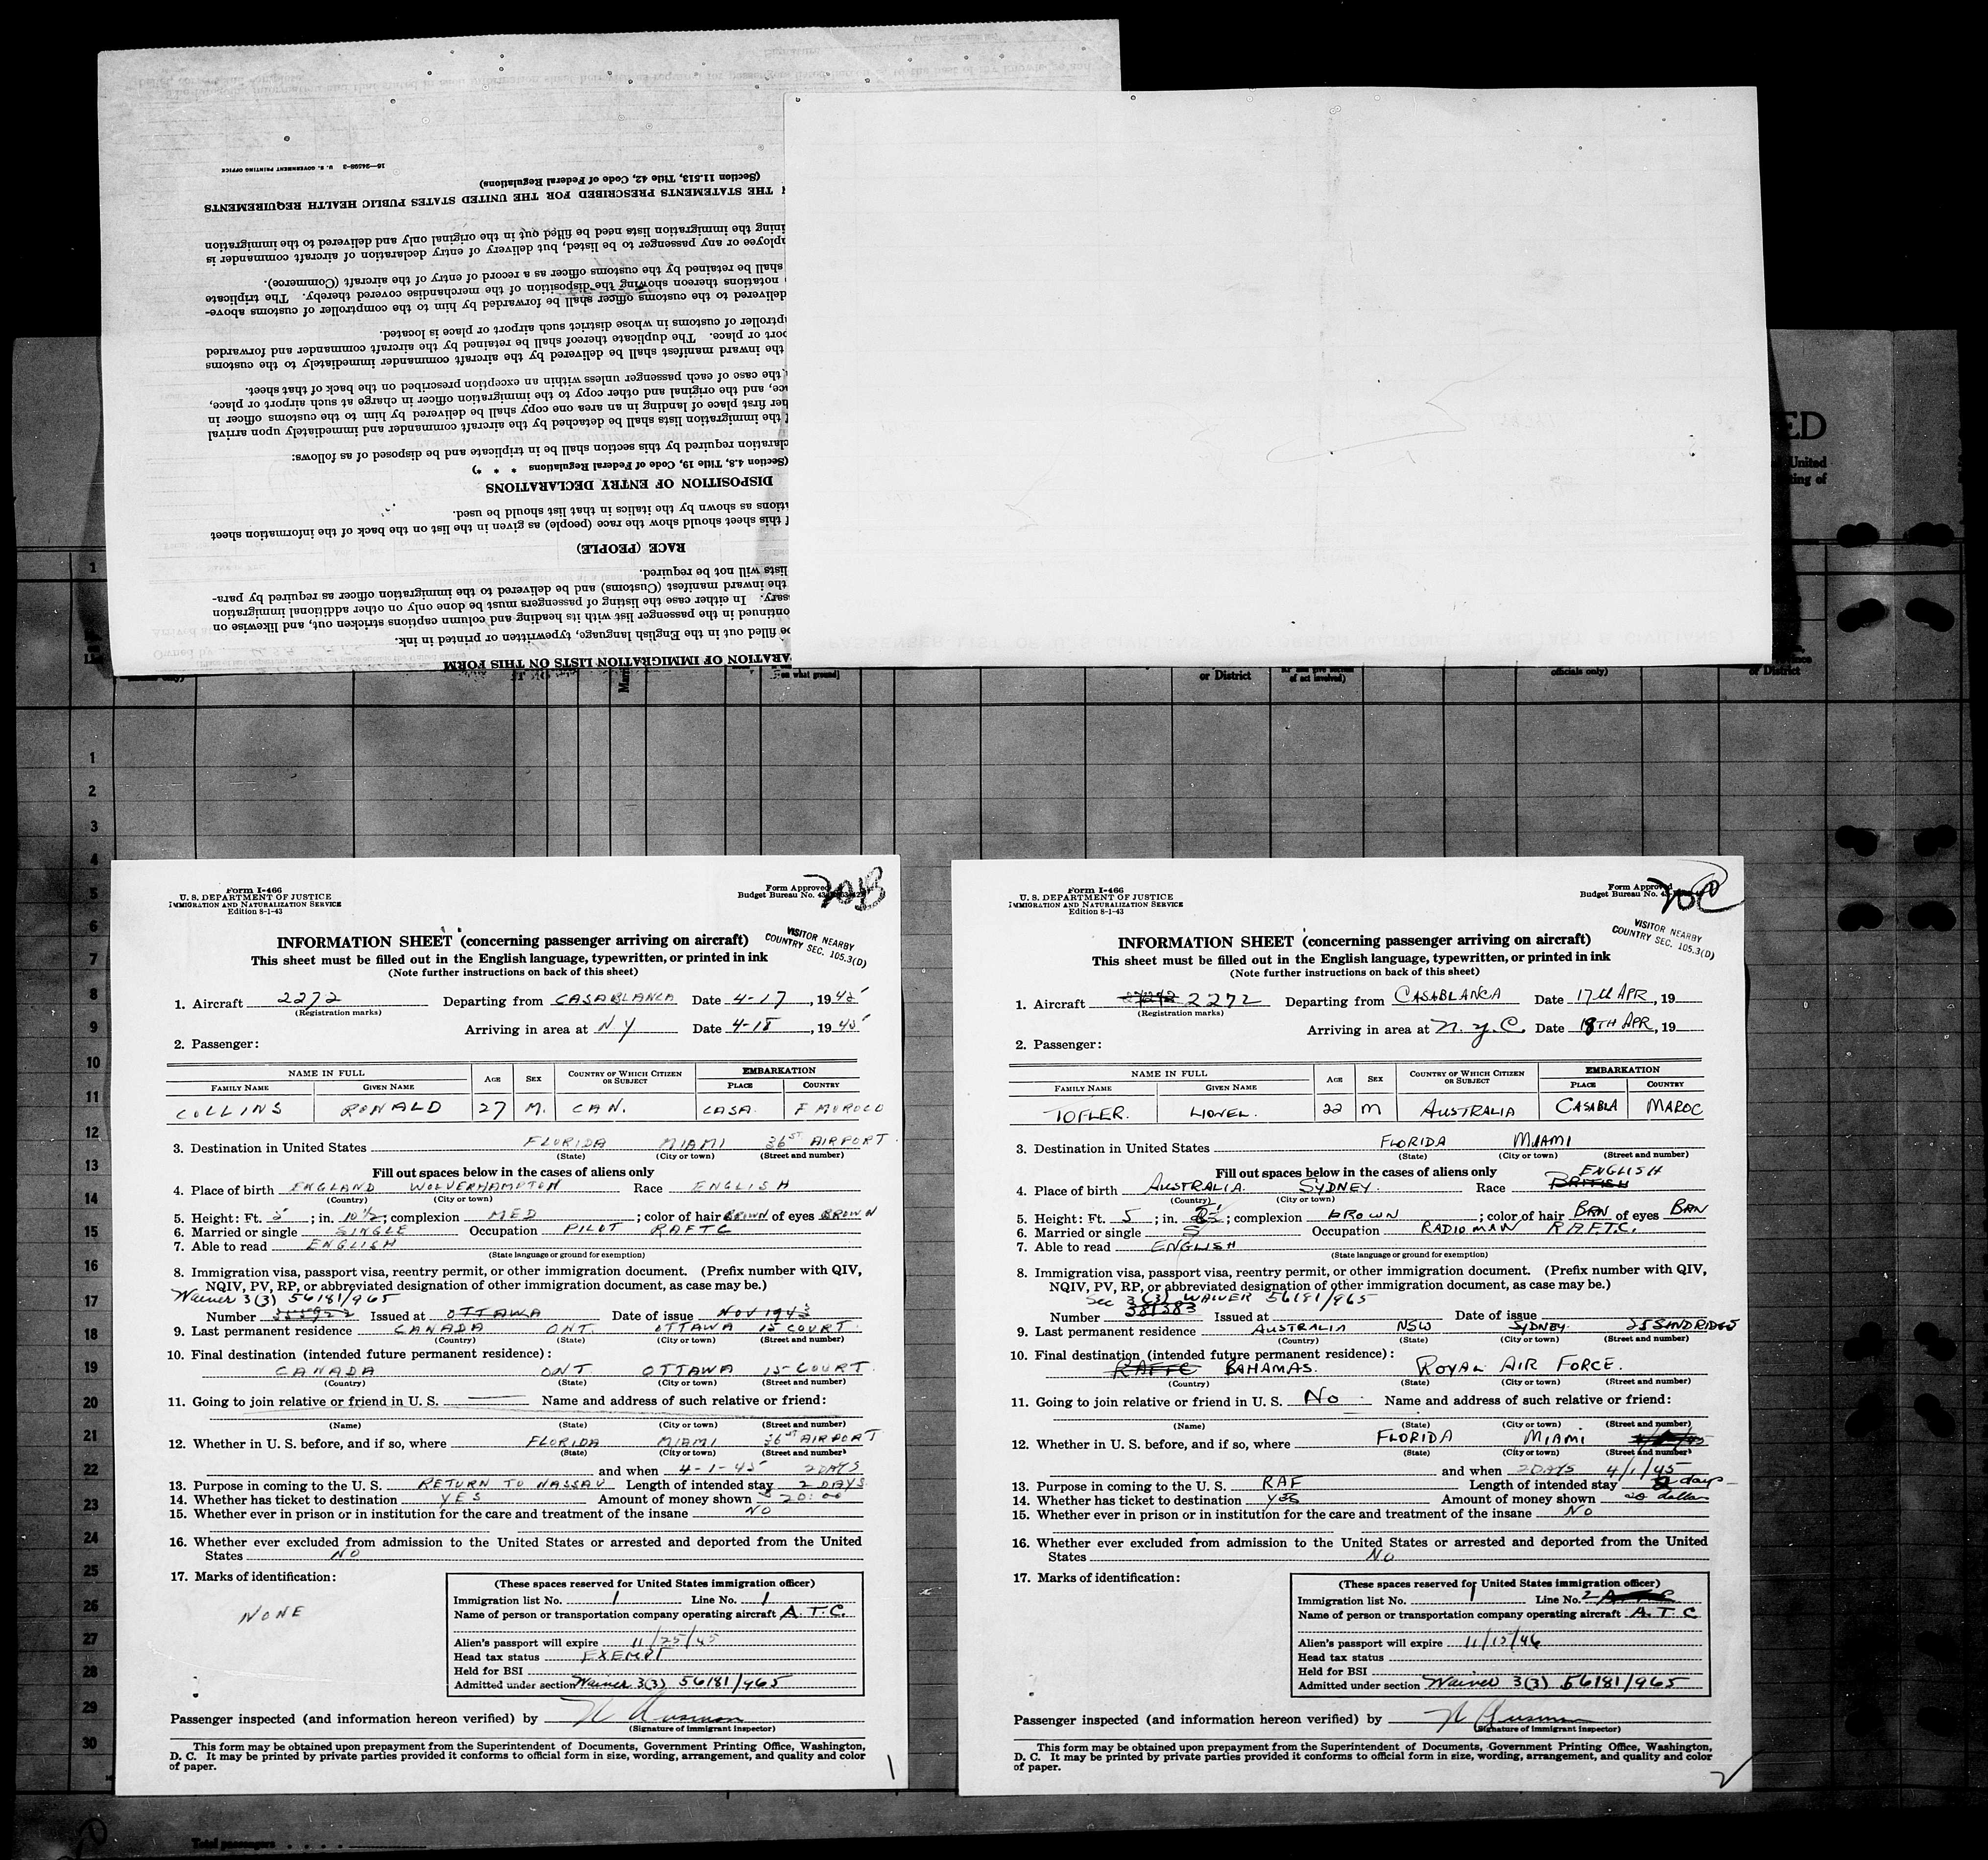 16—24598-3 U. S. GOVERNMENT PRINTING OFFICE
(Section 11.513, Title 42, Code of Federal Regulations)
THE STATEMENTS PRESCRIBED FOR THE UNITED STATES PUBLIC HEALTH REQUIREMENTS
ining the immigration lists need be filled out in the original only and delivered to the immigration
ployee or any passenger to be listed, but delivery of entry declaration of aircraft commander is
shall be retained by the customs officer as a record of entry of the aircraft (Commerce).
notations thereon showing the disposition of the merchandise covered thereby. The triplicate
delivered to the customs officer shall be forwarded by him to the comptroller of customs above-
ptroller of customs in whose district such airport or place is located.
port or place. The duplicate thereof shall be retained by the aircraft commander and forwarded
the inward manifest shall be delivered by the aircraft commander immediately to the customs
the case of each passenger unless within an exception prescribed on the back of that sheet.
ce, and the original and other copy to the immigration officer in charge at such airport or place,
her first place of landing in an area one copy shall be delivered by him to the customs officer in
the immigration lists shall be detached by the aircraft commander and immediately upon arrival
claration required by this section shall be in triplicate and be disposed of as follows:
(Section 4.8, Title 19, Code of Federal Regulations * * *)
DISPOSITION OF ENTRY DECLARATIONS
tions as shown by the italics in that list should be used.
f this sheet should show the race (people) as given in the list on the back of the information sheet
RACE (PEOPLE)
lists will not be required.
the inward manifest (Customs) and be delivered to the immigration officer as required by para-
sary. In either case the listing of passengers must be done only on other additional immigration
ontinued in the passenger list with its heading and column captions stricken out, and likewise on
be filled out in the English language, typewritten or printed in ink.
ARATION OF IMMIGRATION LISTS ON THIS FORM
ED
United
ing of
on what ground)
or District
of act involved)
officials only)
or District
1
1
2
3
4
5
6
7
8
9
10
11
12
13
14
15
16
17
18
19
20
21
22
23
24
25
26
27
28
29
30
Total passengers
Form I-466
U. S. DEPARTMENT OF JUSTICE
IMMIGRATION AND NATURALIZATION SERVICE
Edition 8-1-43
Form Approved
Budget Bureau No.
20B
VISITOR NEARBY
COUNTRY SEC. 105.3(D)
INFORMATION SHEET (concerning passenger arriving on aircraft)
This sheet must be filled out in the English language, typewritten, or printed in ink
(Note further instructions on back of this sheet)
1. Aircraft 2272 Departing from CASABLANCA Date 4-17, 1945
(Registration marks)
Arriving in area at NY Date 4-18, 1945
2. Passenger:
NAME IN FULL AGE SEX COUNTRY OF WHICH CITIZEN OR SUBJECT EMBARKATION
FAMILY NAME GIVEN NAME PLACE COUNTRY
COLLINS RONALD 27 M. CAN. CASA. F MOROCO
3. Destination in United States FLORIDA MIAMI 36ST AIRPORT
(State) (City or town) (Street and number)
Fill out spaces below in the cases of aliens only
4. Place of birth ENGLAND WOLVERHAMPTON Race ENGLISH
(Country) (City or town)
5. Height: Ft. 5; in. 10½; complexion MED; color of hair BROWN of eyes BROWN
6. Married or single SINGLE Occupation PILOT RAFTC
7. Able to read ENGLISH
(State language or ground for exemption)
8. Immigration visa, passport visa, reentry permit, or other immigration document. (Prefix number with QIV,
NQIV, PV, RP, or abbreviated designation of other immigration document, as case may be.)
Waiver 3(3) 56181/965
Number Issued at OTTAWA Date of issue NOV 1943
9. Last permanent residence CANADA ONT. OTTAWA 15 COURT.
(Country) (State) (City or town) (Street and number)
10. Final destination (intended future permanent residence):
CANADA ONT. OTTAWA 15 COURT.
(Country) (State) (City or town) (Street and number)
11. Going to join relative or friend in U. S. Name and address of such relative or friend:
(Name) (State) (City or town) (Street and number)
12. Whether in U. S. before, and if so, where FLORIDA MIAMI 36ST AIRPORT
(State) (City or town) (Street and number)
and when 4-1-45 2 DAYS
13. Purpose in coming to the U. S. RETURN TO NASSAU Length of intended stay 2 DAYS
14. Whether has ticket to destination YES Amount of money shown $20.00
15. Whether ever in prison or in institution for the care and treatment of the insane NO
16. Whether ever excluded from admission to the United States or arrested and deported from the United
States NO
17. Marks of identification:
NONE
(These spaces reserved for United States immigration officer)
Immigration list No. 1 Line No. 1
Name of person or transportation company operating aircraft A.T.C.
Alien's passport will expire 11/25/45
Head tax status EXEMPT
Held for BSI
Admitted under section Waiver 3(3) 56181/965
Passenger inspected (and information hereon verified) by
(Signature of immigrant inspector)
This form may be obtained upon prepayment from the Superintendent of Documents, Government Printing Office, Washington,
D. C. It may be printed by private parties provided it conforms to official form in size, wording, arrangement, and quality and color
of paper.
1
Form I-466
U. S. DEPARTMENT OF JUSTICE
IMMIGRATION AND NATURALIZATION SERVICE
Edition 8-1-43
Form Approved
Budget Bureau No.
20C
VISITOR NEARBY
COUNTRY SEC. 105.3(D)
INFORMATION SHEET (concerning passenger arriving on aircraft)
This sheet must be filled out in the English language, typewritten, or printed in ink
(Note further instructions on back of this sheet)
1. Aircraft 2272 Departing from CASABLANCA Date 17th APR, 19
(Registration marks)
Arriving in area at N.Y.C. Date 18TH APR, 19
2. Passenger:
NAME IN FULL AGE SEX COUNTRY OF WHICH CITIZEN OR SUBJECT EMBARKATION
FAMILY NAME GIVEN NAME PLACE COUNTRY
TOFLER. LIONEL. 22 M AUSTRALIA CASABLA MAROC
3. Destination in United States FLORIDA MIAMI
(State) (City or town) (Street and number)
Fill out spaces below in the cases of aliens only
ENGLISH
4. Place of birth AUSTRALIA. SYDNEY. Race BRITISH
(Country) (City or town)
5. Height: Ft. 5; in.; complexion BROWN; color of hair BRN of eyes BRN
6. Married or single S Occupation RADIO MAN R.A.F.T.C.
7. Able to read ENGLISH
(State language or ground for exemption)
8. Immigration visa, passport visa, reentry permit, or other immigration document. (Prefix number with QIV,
NQIV, PV, RP, or abbreviated designation of other immigration document, as case may be.)
Sec 3(3) WAIVER 56181/965
Number 381383 Issued at Date of issue
9. Last permanent residence AUSTRALIA NSW SYDNEY.
(Country) (State) (City or town) (Street and number)
10. Final destination (intended future permanent residence):
RAFTC BAHAMAS. ROYAL AIR FORCE.
(Country) (State) (City or town) (Street and number)
11. Going to join relative or friend in U. S. No Name and address of such relative or friend:
(Name) (State) (City or town) (Street and number)
12. Whether in U. S. before, and if so, where FLORIDA MIAMI
(State) (City or town) (Street and number)
and when 2 DAYS 4/1/45
13. Purpose in coming to the U. S. RAF Length of intended stay 2 days
14. Whether has ticket to destination YES Amount of money shown 20 dollar
15. Whether ever in prison or in institution for the care and treatment of the insane No
16. Whether ever excluded from admission to the United States or arrested and deported from the United
States No
17. Marks of identification:
(These spaces reserved for United States immigration officer)
Immigration list No. 1 Line No. 2
Name of person or transportation company operating aircraft A.T.C
Alien's passport will expire 11/15/46
Head tax status
Held for BSI
Admitted under section Waiver 3(3) 56181/965
Passenger inspected (and information hereon verified) by
(Signature of immigrant inspector)
This form may be obtained upon prepayment from the Superintendent of Documents, Government Printing Office, Washington,
D. C. It may be printed by private parties provided it conforms to official form in size, wording, arrangement, and quality and color
of paper.
2